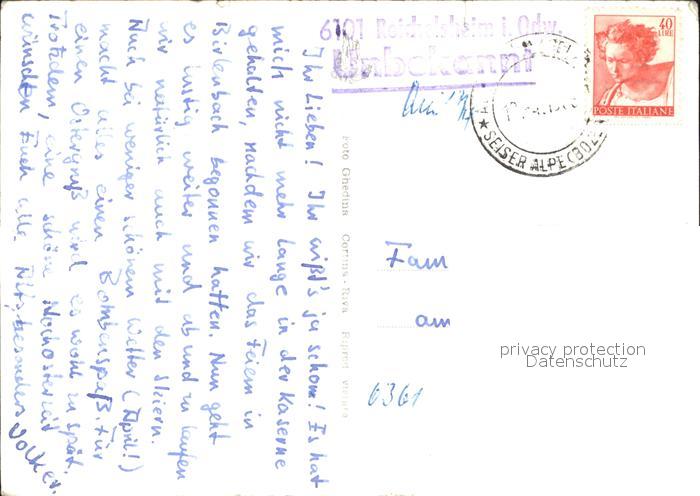 6101 Reichelsheim i. Odw.
Unbekannt
40
LIRE
POSTE ITALIANE
★ SEISER ALPE (BOZ
Ihr Lieben! Ihr wißt's ja schon! Es hat
mich nicht mehr lange in der Kaserne
gehalten, nachdem wir das Feiern in
Birlenbach begonnen hatten. Nun geht
es lustig weiter und ab und zu laufen
wir natürlich auch mit den Skiern.
Auch bei weniger schönem Wetter (April!)
macht alles einen Bombenspaß. Für
einen Ostergruß wird es wohl zu spät.
Trotzdem, eine schöne Nachosterzeit
wünschen Euch alle, besonders Volker.
Foto Ghedina Cortina -
Fam
am
6361
privacy protection
Datenschutz